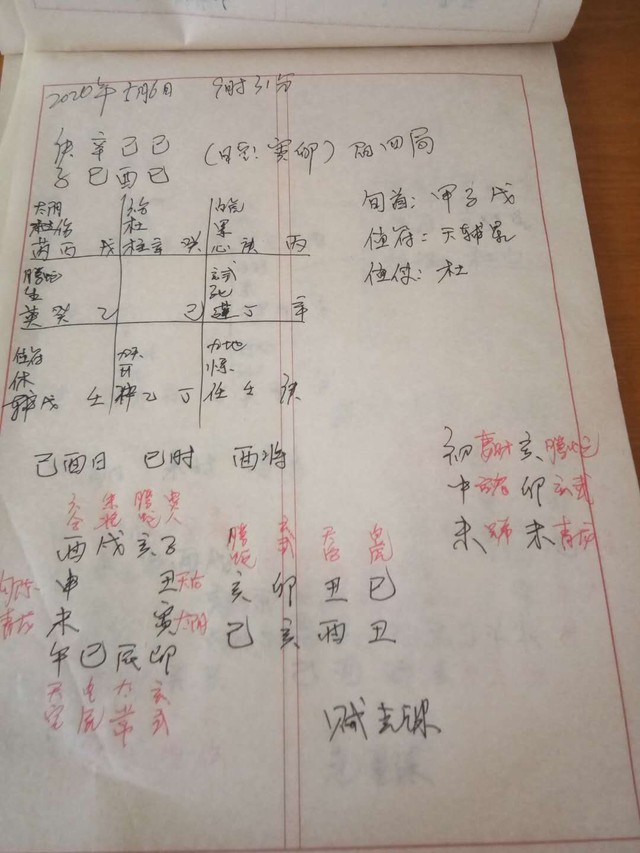 2020年5月6日 9时31分
庚 辛 己 己
(日空: 寅卯) 阳四局
子 巳 酉 巳
旬首: 甲子戊
值符: 天辅星
值使: 杜
太阴 六合 白虎
伤 杜 景
芮 丙 戊 柱 辛 癸 心 庚 丙
腾蛇 玄武
生 死
英 癸 乙 己 蓬 丁 辛
值符 九天 九地
休 开 惊
辅 戊 壬 冲 乙 丁 任 壬 庚
己酉日 巳时 酉将
初 妻财 亥 腾蛇
中 官鬼 卯 玄武
末 兄弟 未 青龙
六合 朱雀 腾蛇 贵人
酉 戌 亥 子
腾蛇 玄武 天后 白虎
勾陈 申 丑 天后
亥 卯 丑 巳
青龙 未 寅 太阴
己 亥 酉 丑
午 巳 辰 卯
天空 白虎 太常 玄武
克课